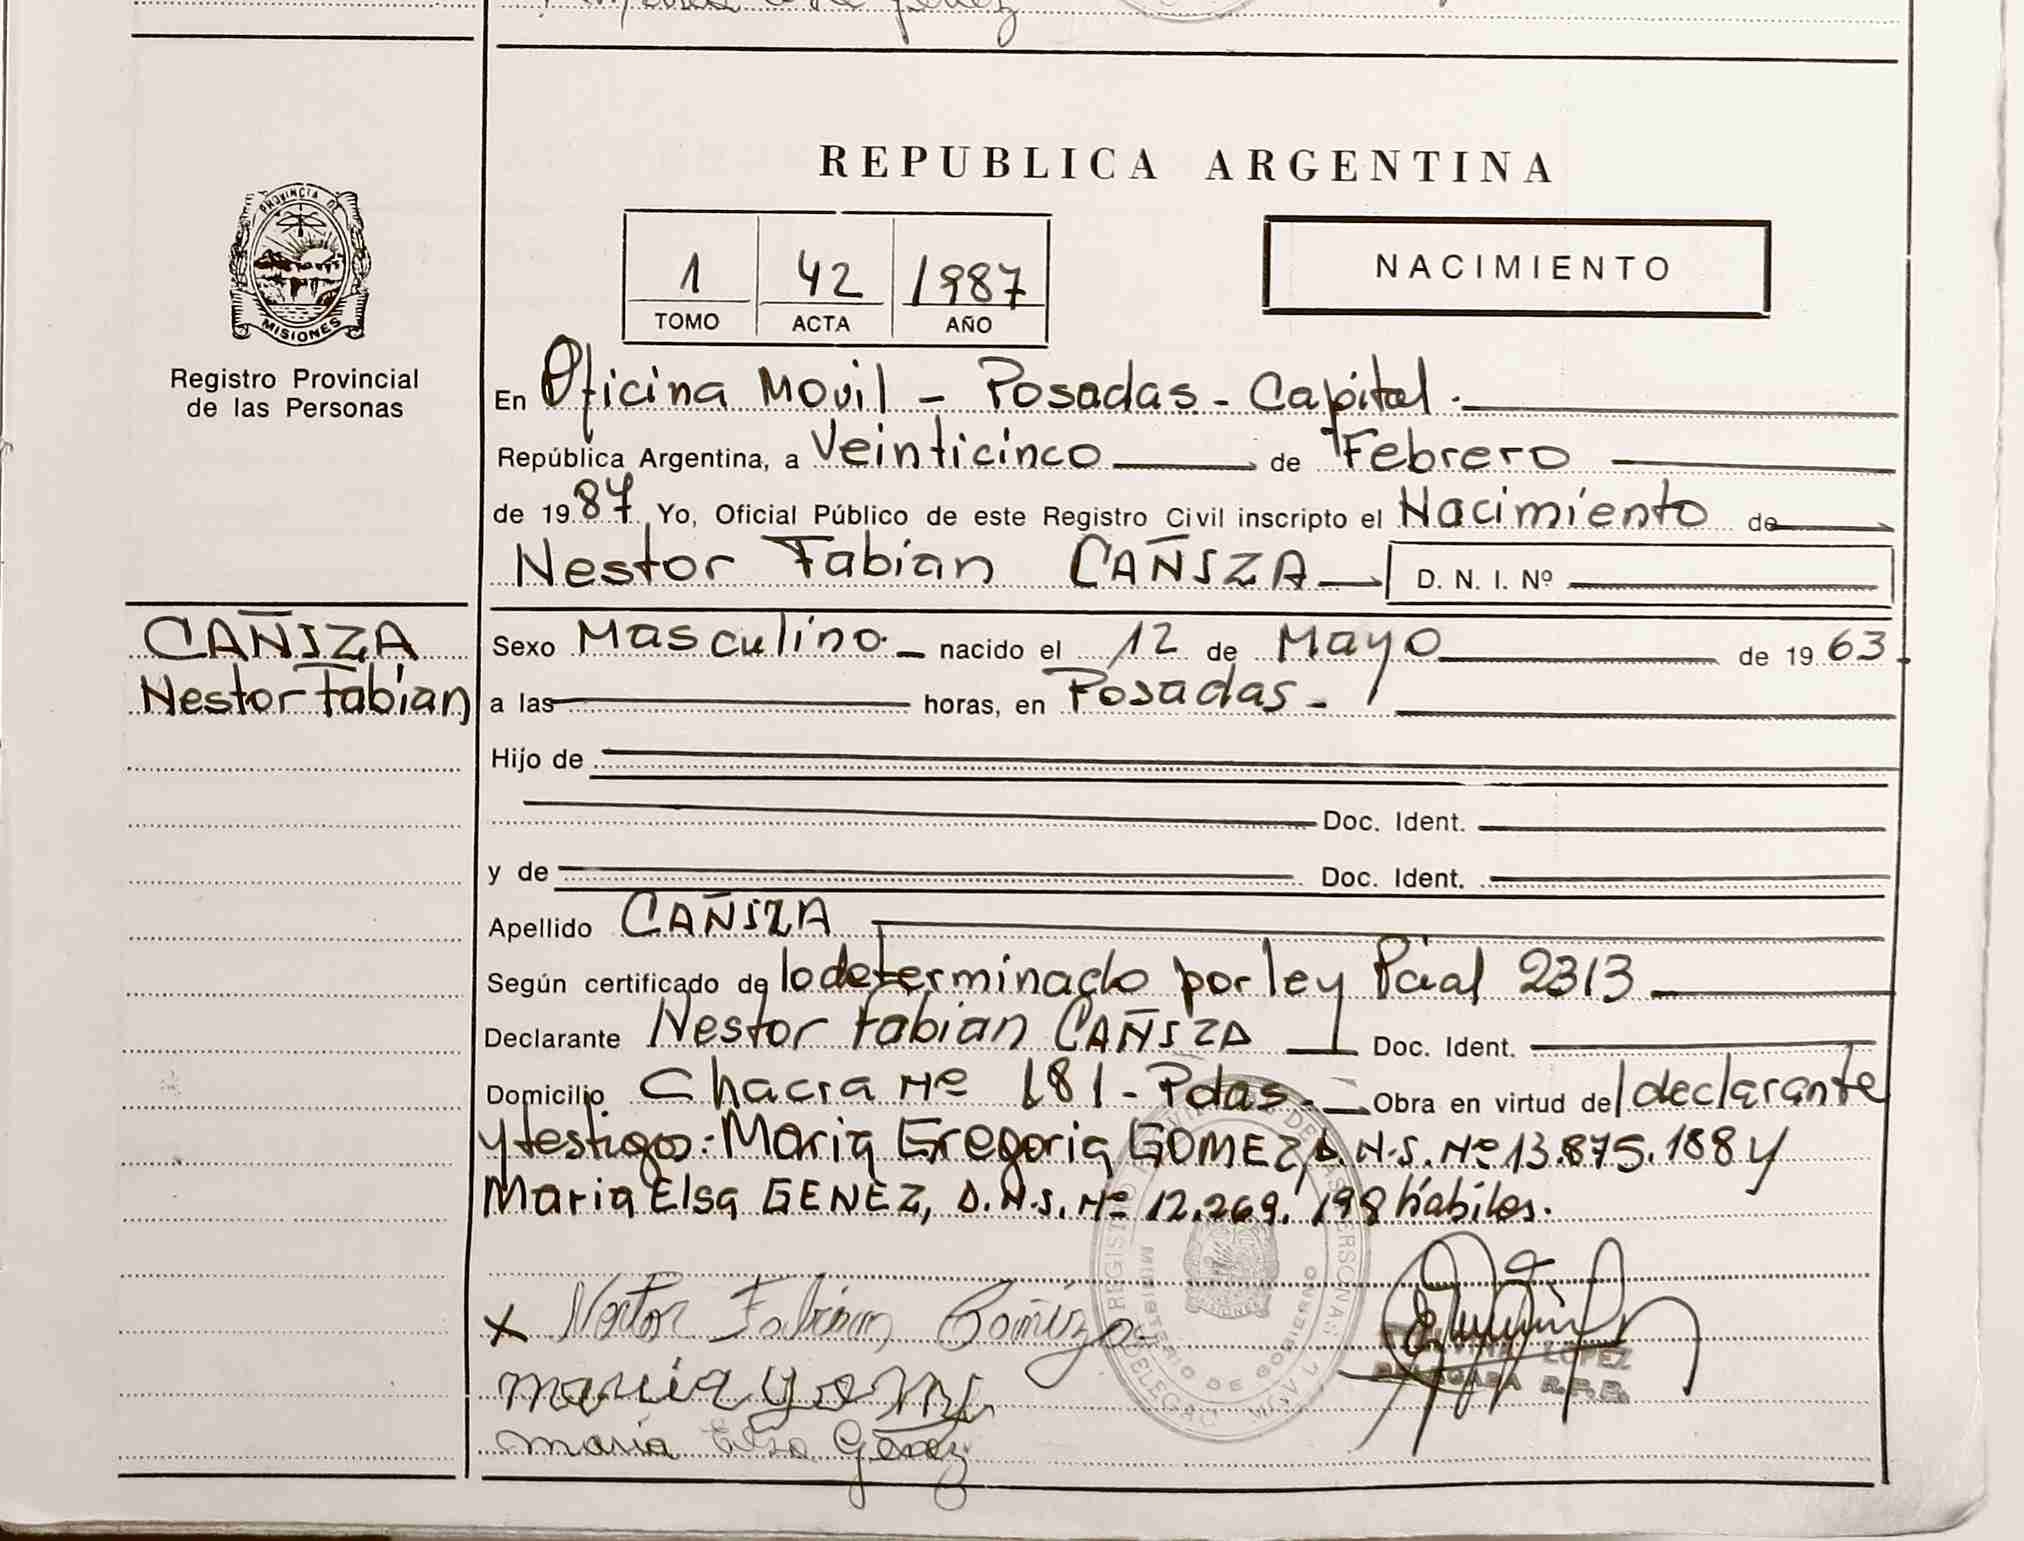 REPUBLICA ARGENTINA
PROVINCIA DE
MISIONES
Registro Provincial
de las Personas
1 42 1987
TOMO ACTA AÑO
NACIMIENTO
En Oficina Movil - Posadas - Capital.
República Argentina, a Veinticinco de Febrero
de 1987 Yo, Oficial Público de este Registro Civil inscripto el Nacimiento de
Nestor Fabian CAÑIZA D. N. I. Nº
CAÑIZA
Nestor Fabian
Sexo Masculino nacido el 12 de Mayo de 1963
a las horas, en Posadas -
Hijo de
Doc. Ident.
y de Doc. Ident.
Apellido CAÑIZA
Según certificado de lo determinado por ley Pcial 2313
Declarante Nestor Fabian CAÑIZA Doc. Ident.
Domicilio Chacra Nº 181 - Pdas. Obra en virtud del declarante
y testigos: Maria Gregoria GOMEZ, D.N.I. Nº 13.875.188 y
Maria Elsa GENEZ, D.N.I. Nº 12.269.198 hábiles.
x Nestor Fabian Cañiza
maria gomez
maria Elsa Genez
MINISTERIO DE GOBIERNO
LOPEZ
DELEGADA R.P.P.